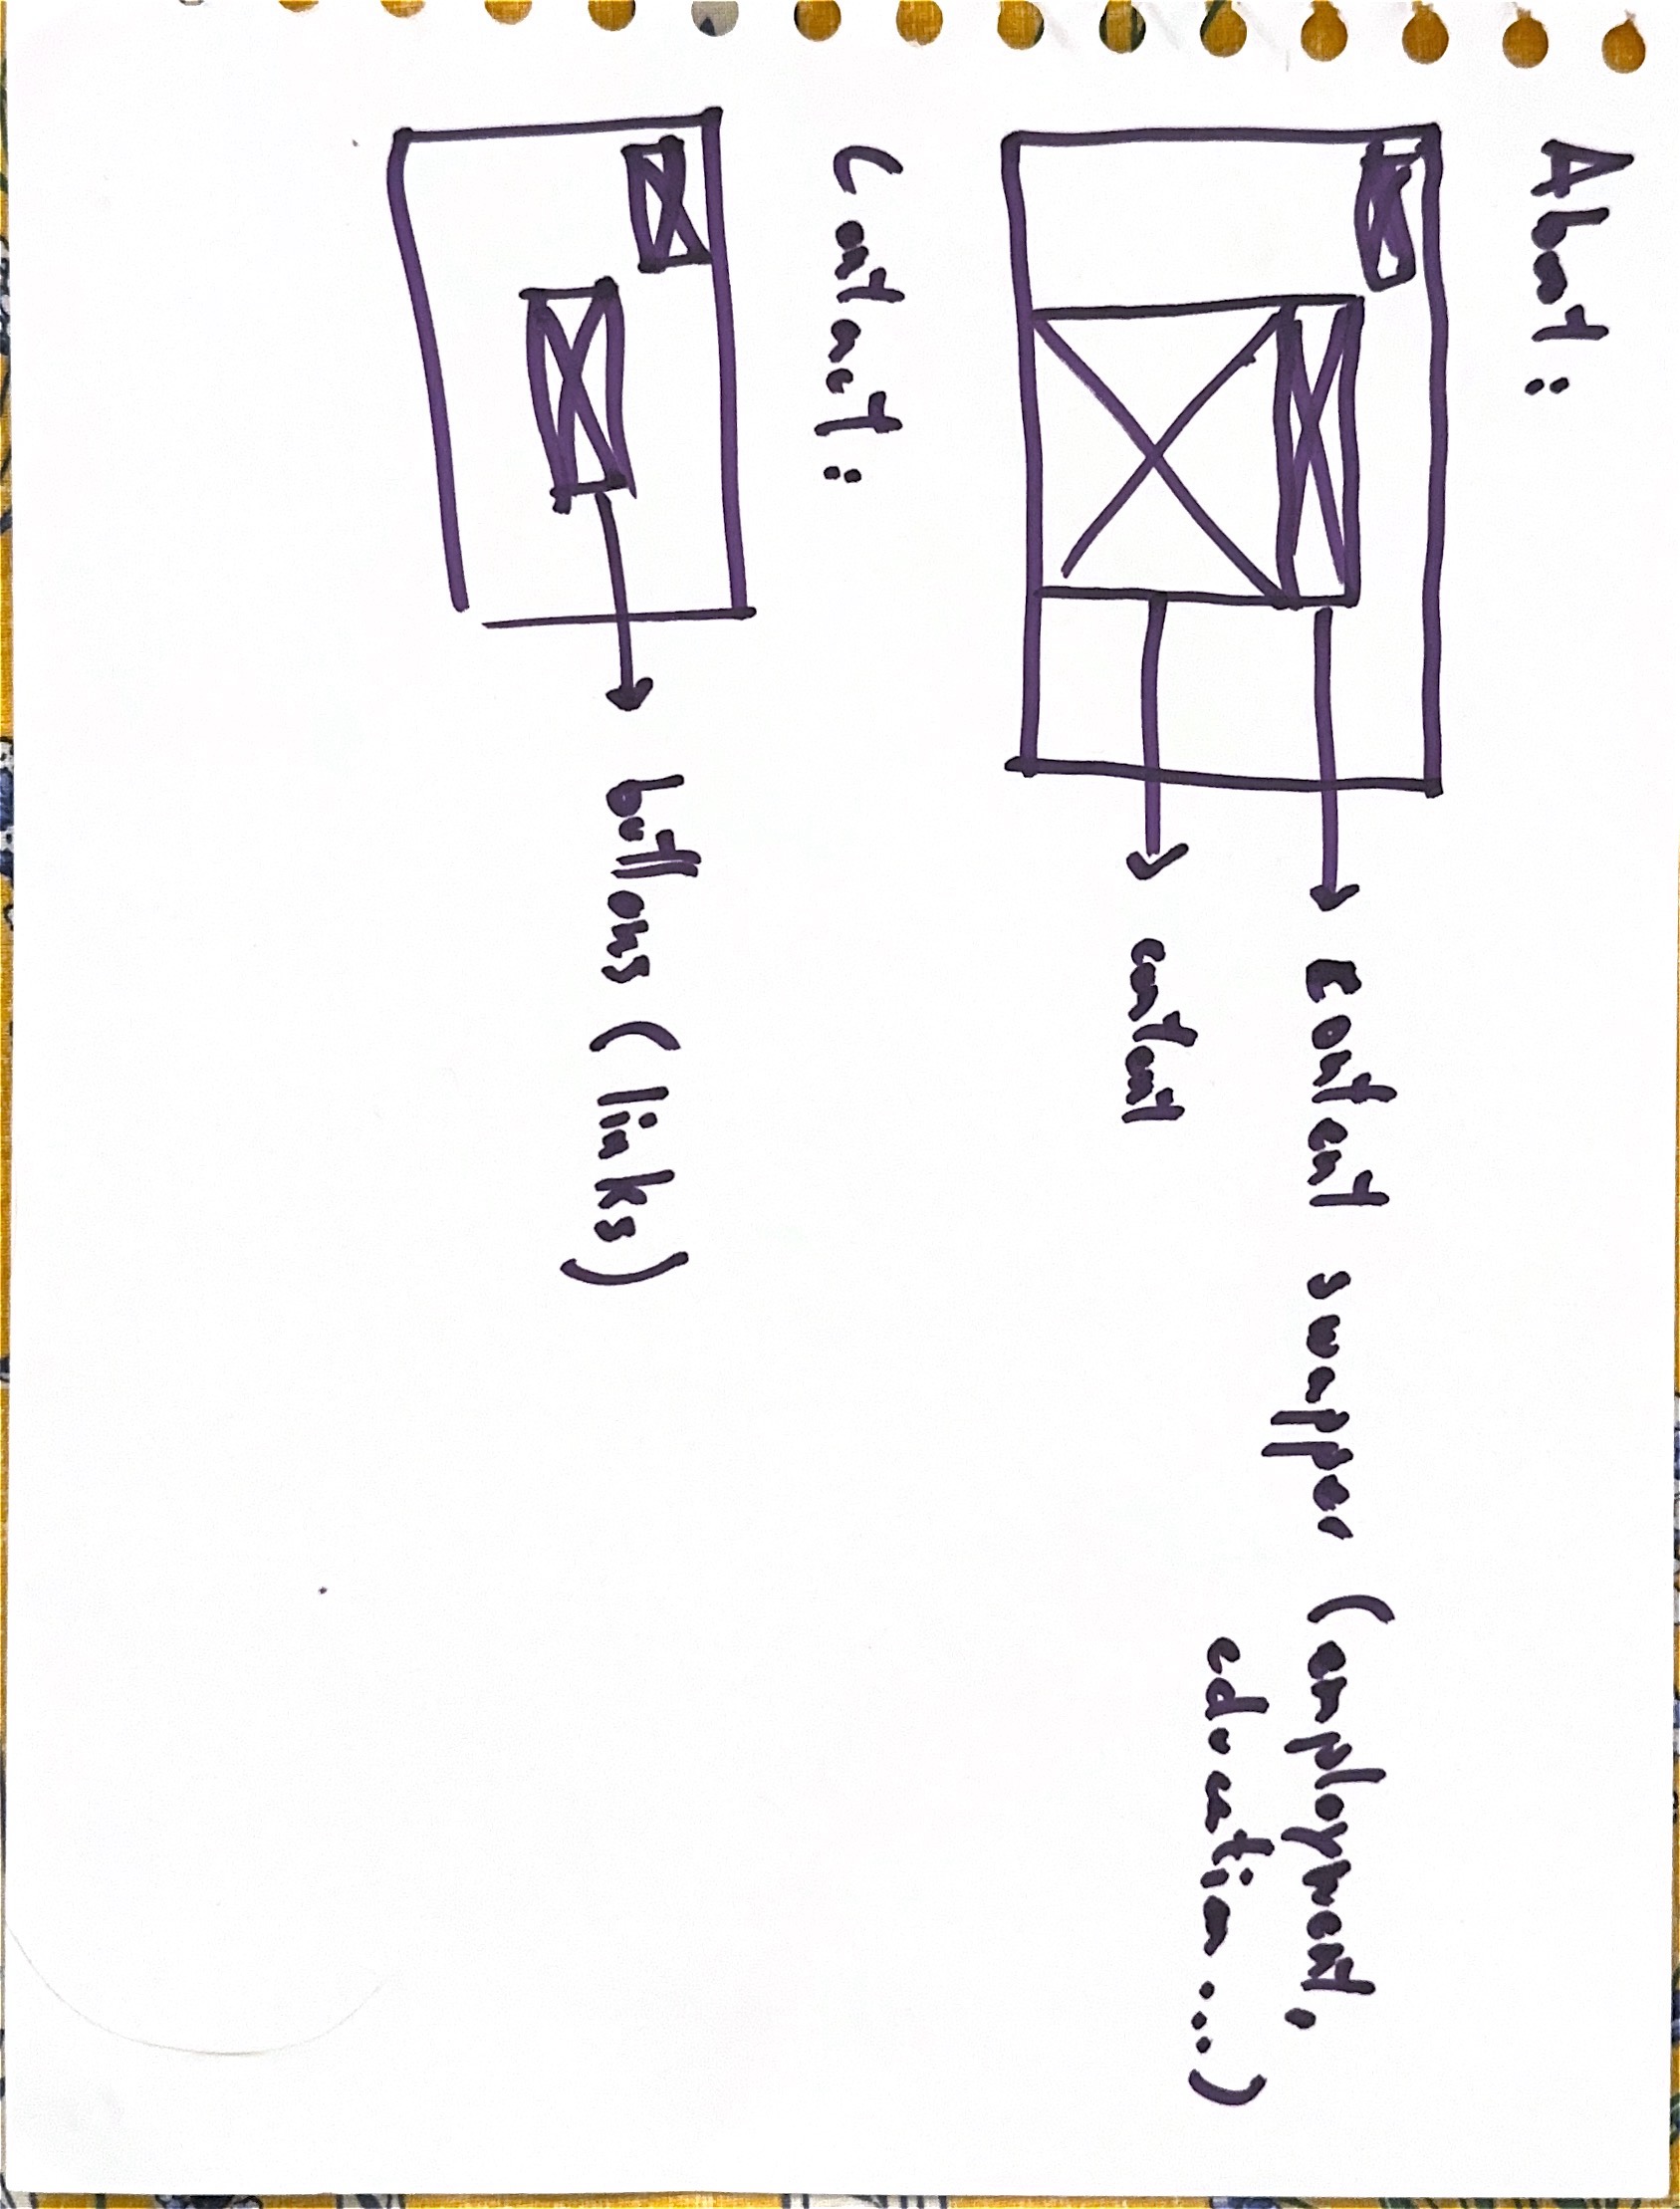 About:
content swapper (employment,
education ...)
content
Contact:
buttons (links)